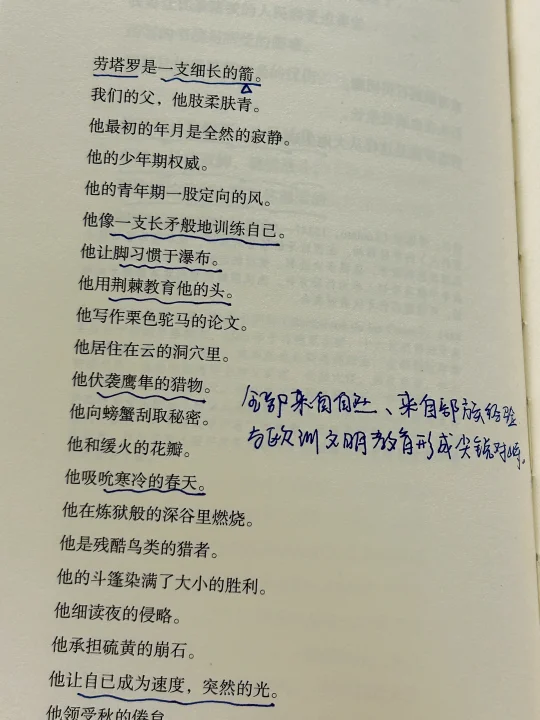 劳塔罗是一支细长的箭。
我们的父，他肢柔肤青。
他最初的年月是全然的寂静。
他的少年期权威。
他的青年期一股定向的风。
他像一支长矛般地训练自己。
他让脚习惯于瀑布。
他用荆棘教育他的头。
他写作栗色驼马的论文。
他居住在云的洞穴里。
他伏袭鹰隼的猎物。
全部来自自然、来自部族经验
他向螃蟹刮取秘密。
与欧洲文明教育形成尖锐对峙。
他和缓火的花瓣。
他吸吮寒冷的春天。
他在炼狱般的深谷里燃烧。
他是残酷鸟类的猎者。
他的斗篷染满了大小的胜利。
他细读夜的侵略。
他承担硫黄的崩石。
他让自己成为速度，突然的光。
他领受秋的倦怠